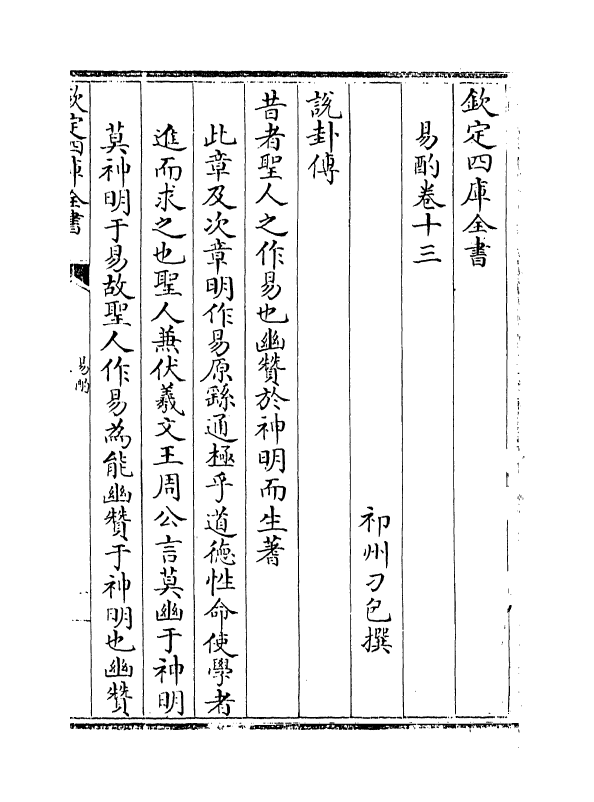 欽定四庫全書
易酌卷十三
祁州刁包撰
說卦傳
昔者聖人之作易也幽贊於神明而生蓍
此章及次章明作易原繇通極乎道德性命使學者
進而求之也聖人兼伏羲文王周公言莫幽于神明
莫神明于易故聖人作易為能幽贊于神明也幽贊
欽定四庫全書
易酌